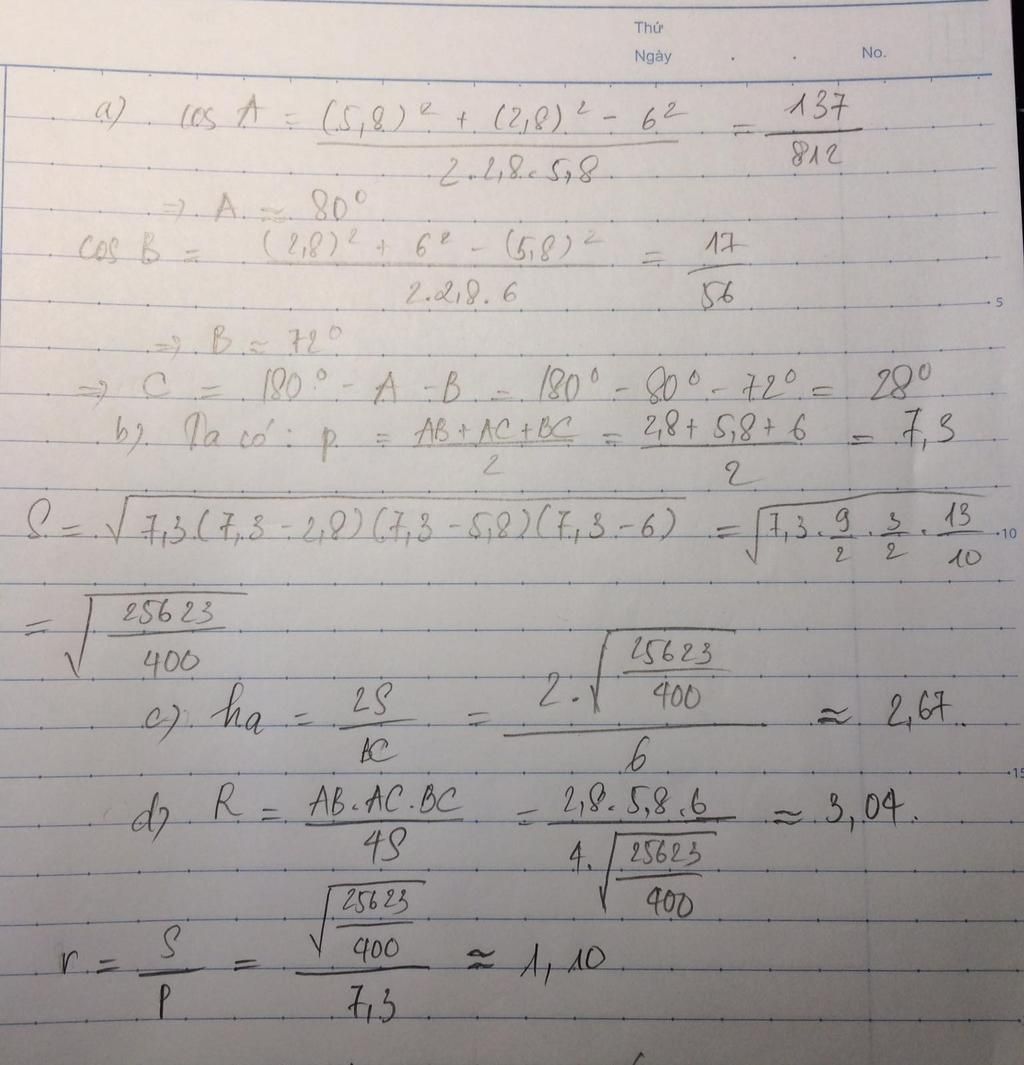 Thứ
Ngày . . No.
a) cos A = \frac{(5,8)² + (2,8)² - 6²}{2.2,8.5,8} = \frac{137}{812}
=> A ≈ 80°
cos B = \frac{(2,8)² + 6² - (5,8)²}{2.2,8.6} = \frac{17}{56}
5
=> B ≈ 72°
=> C = 180° - A - B = 180° - 80° - 72° = 28°
b) Ta có: p = \frac{AB + AC + BC}{2} = \frac{2,8 + 5,8 + 6}{2} = 7,3
S = \sqrt{7,3.(7,3 - 2,8)(7,3 - 5,8)(7,3 - 6)} = \sqrt{7,3 . \frac{9}{2} . \frac{3}{2} . \frac{13}{10}}
10
= \sqrt{\frac{25623}{400}}
c) ha = \frac{2S}{AC} = \frac{2.\sqrt{\frac{25623}{400}}}{6} ≈ 2,67.
15
d) R = \frac{AB.AC.BC}{4S} = \frac{2,8.5,8.6}{4.\sqrt{\frac{25623}{400}}} ≈ 3,04.
r = \frac{S}{P} = \frac{\sqrt{\frac{25623}{400}}}{7,3} ≈ 1,10